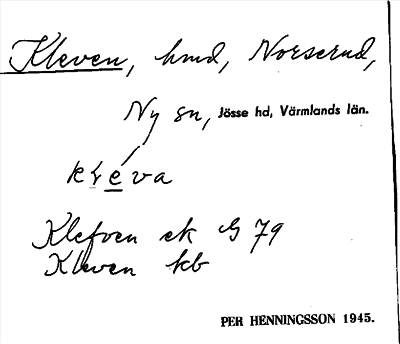 Kleven, hmd, Norserud,
Ny sn, Jösse hd, Värmlands län.
Klefven ek G 79
Kleven kb
PER HENNINGSSON 1945.